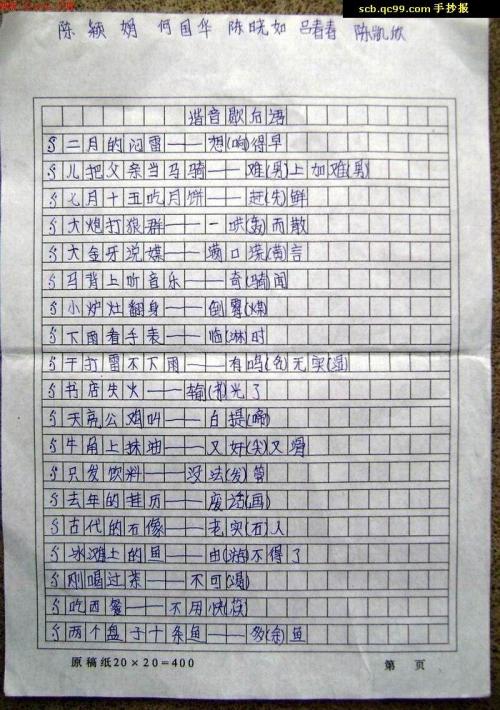 scb.qc99.com 手抄报
陈颖娟 何国华 陈晓如 吕春春 陈凯欣
谐音歇后语
二月的闷雷——想(响)得早
儿把父亲当马骑——难(男)上加难(男)
七月十五吃月饼——赶(先)鲜
大炮打狼群——一哄(轰)而散
大金牙说媒——满口谎(黄)言
马背上听音乐——奇(骑)闻
小炉灶翻身——倒霉(煤)
下雨看手表——临(淋)时
干打雷不下雨——有鸣(名)无实(湿)
书店失火——输(书)光了
天亮公鸡叫——白提(啼)
牛角上抹油——又奸(尖)又滑
只发饮料——没法(发)管
去年的挂历——废话(画)
古代的石像——老实(石)人
冰滩上的鱼——由(游)不得了
刚喝过茶——不可(渴)
吃西餐——不用快(筷)
两个盘子十条鱼——多(余)鱼
原稿纸20×20=400 第 页